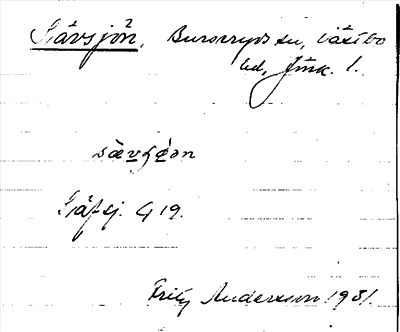 Sävsjön, Burseryds sn, Västbo
hd, Jönk. l.
sä̀vʃø̀n
Säfsj. G 19.
Fritz Andersson 1931.